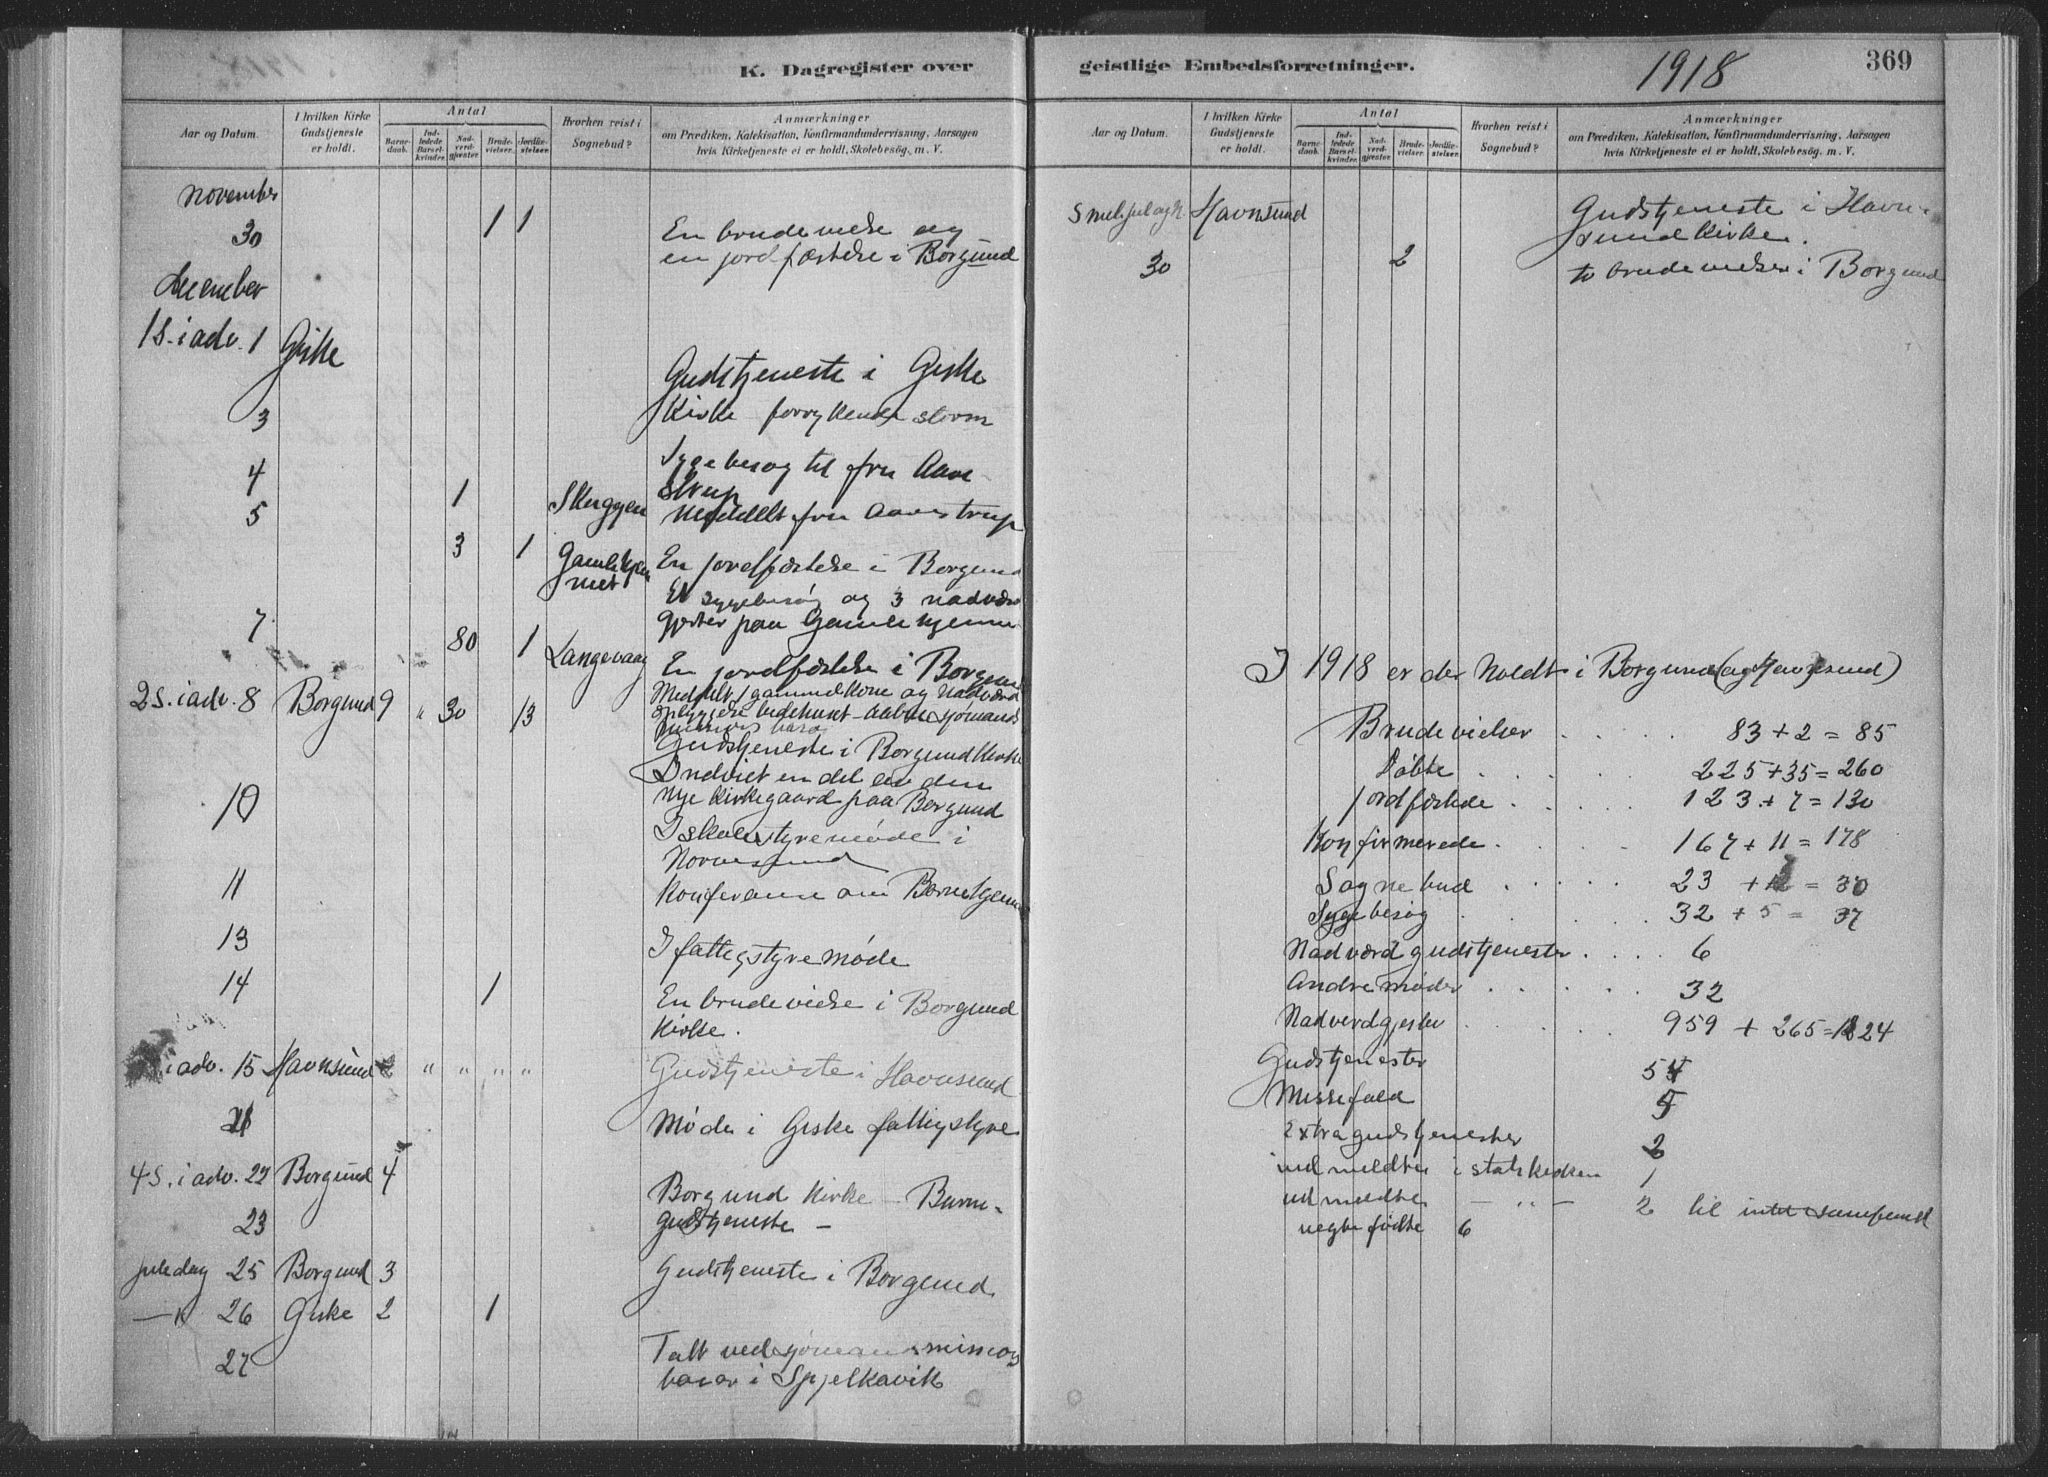 K. Dagregister over
Aar og Datum.
I hvilken Kirke Gudstjeneste er holdt.
Antal
Barne- daab.
Ind- ledede Barsel- kvinder.
Nad- verd- gjester.
Brude- vielser.
Jordfæ- stelser.
Hvorhen reist i Sognebud?
Anmærkninger
om Prædiken, Katekisation, Konfirmandundervisning, Aarsagen
hvis Kirketjeneste ei er holdt, Skolebesøg, m. V.
November
30 1 1 En brudevielse og
en jordfæstelse i Borgund
December
1 S. i adv. 1 Giske
Gudstjeneste i Giske
3 Kirke forrykende storm
4 Sygebesøg til fru Aare
strup
5 1 Skuggen Meddelt fru Aarestrup
3 1 Gamlehjem
met
En jordfæstelse i Borgund
Et sygebesøg og 3 nadværd
gjester paa Gamlehjemm
7 80 1 Langevaag
En jordfæstelse i Borgund
2 S. i adv. 8 Borgund 9 " 30 13
Gudstjeneste i Borgund Kirke
Indviet en del av den
nye Kirkegaard paa Borgund
10 I skolestyremøde i
Norvesund
11 Konferanse om Barnehjem
13 I fattigstyremøde
14 1 En brudevielse i Borgund
Kirke.
i adv. 15 Havnsund 2 " " " "
Gudstjeneste i Havnsund
21 Møde i Giske fattigstyre
4 S. i adv. 22 Borgund 4
Borgund Kirke - Barne-
gudstjeneste -
23
Juledag 25 Borgund 3 Gudstjeneste i Borgund
26 Giske 2 1
27 Talt ved sjømandsmissions
basar i Spjelkavik
geistlige Embedsforretninger.
1918
369
Aar og Datum.
I hvilken Kirke Gudstjeneste er holdt.
Antal
Barne- daab.
Ind- ledede Barsel- kvinder.
Nad- verd- gjester.
Brude- vielser.
Jordfæ- stelser.
Hvorhen reist i Sognebud?
Anmærkninger
om Prædiken, Katekisation, Konfirmandundervisning, Aarsagen
hvis Kirketjeneste ei er holdt, Skolebesøg, m. V.
Havnsund Gudstjeneste i Havn-
sund Kirke.
30 2 to brudevielser i Borgund
I 1918 er der holdt i Borgund (og Havnsund)
Brudevielser . . . . . 83 + 2 = 85
Døbte . . . . . 225 + 35 = 260
Jordfæstede . . . . . 123 + 7 = 130
Konfirmerede . . . . . 167 + 11 = 178
Sognebud . . . . . 23 + = 30
Sygebesøg . . . . . 32 + 5 = 37
Nadværdgudstjenester . . . . 6
Andre møder . . . . . 32
Nadverdgjester . . . . . 959 + 265 = 1224
Gudstjenester 54
Messefald 5
Extragudstjenester 2
indmeldte i statskirken 1
udmeldte — " — 2 til intet samfund
uegtefødte 6